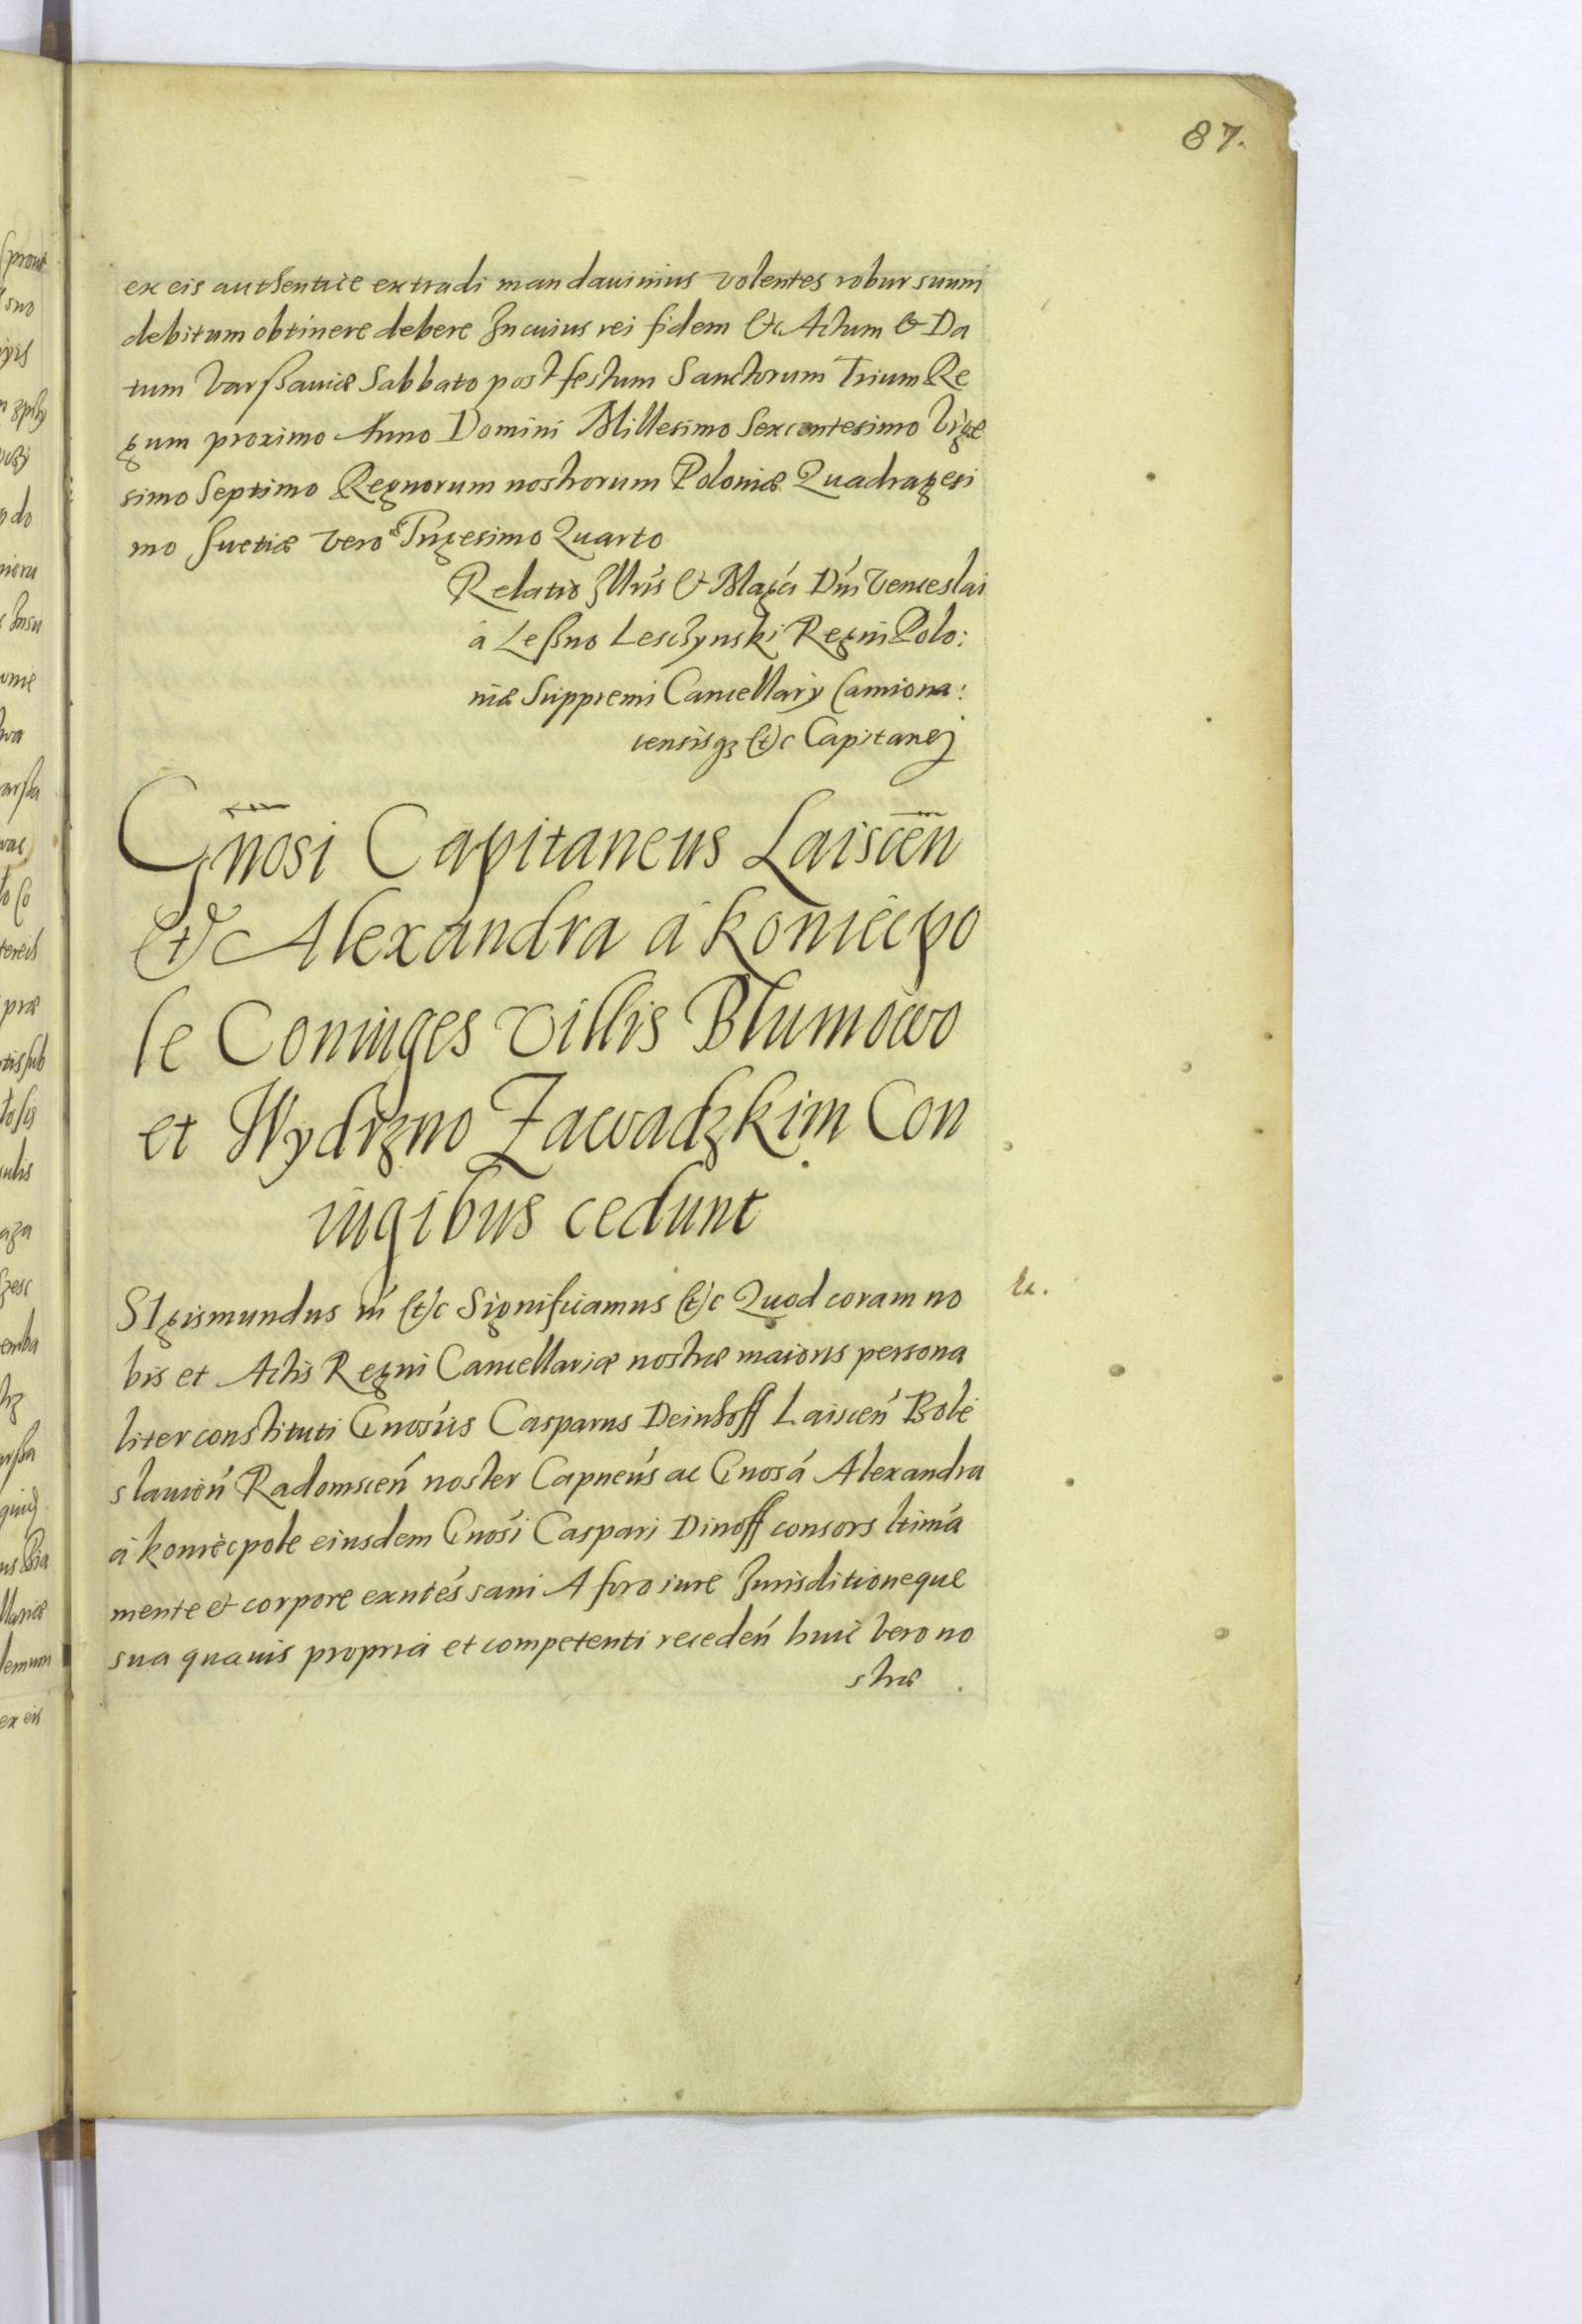 87.
ex eis authentice extradi mandauimus volentes robur suum
debitum obtinere debere In cuius rei fidem &c Actum & Da
tum Varssauiæ Sabbato post festum Sanctorum Trium Re
gum proximo Anno Domini Millesimo Sexcentesimo Vige
simo Septimo Regnorum nostrorum Poloniæ Quadragesi
mo Suetiæ vero Trigesimo Quarto
Relatio Illris & Magci Dni Venceslai
à Lessno Lesczynski Regni Polo:
niæ Suppremi Cancellarij Camiona:
censisq3 (et)c Capitanej
Gnosi Capitaneus Laiscen
(et)c Alexandra à Koniecpo
le Coniuges Villis Blumowo
et Wydrzno Zawadzkim Con
iugibus cedunt
SIgismundus III (et)c Significamus (et)c Quod coram no
bis et Actis Regni Cancellariæ nostræ maioris persona
liter constituti Gnosus Casparus Deinhoff Laiscen Bole
slauien Radomscen noster Capneus ac Gnosa Alexandra
à Koniecpole eiusdem Gnosi Caspari Dinoff consors ltima
mente et corpore exntes sani A foro iure Jurisditioneque
sua quauis propria et competenti receden huic vero no
stræ